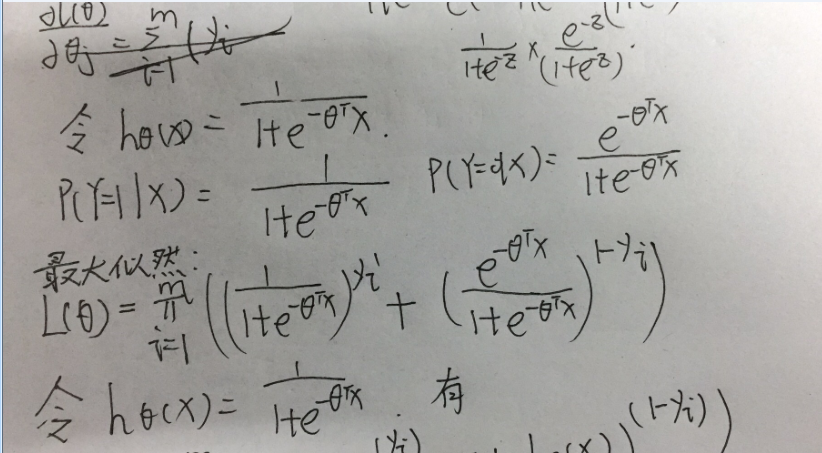 ∂l(θ)/∂θj = Σ_{i=1}^{m} (yi
1/(1+e^{-z}) × e^{-z}/(1+e^{-z}).
令 hθ(x) = 1/(1+e^{-θ^T x}).
P(Y=1|X) = 1/(1+e^{-θ^T x}) P(Y=0|X) = e^{-θ^T x}/(1+e^{-θ^T x})
最大似然:
L(θ) = ∏_{i=1}^{m} ((1/(1+e^{-θ^T x}))^{yi} + (e^{-θ^T x}/(1+e^{-θ^T x}))^{1-yi})
令 hθ(X) = 1/(1+e^{-θ^T x}). 有
(yi) (x))^{(1-yi)})